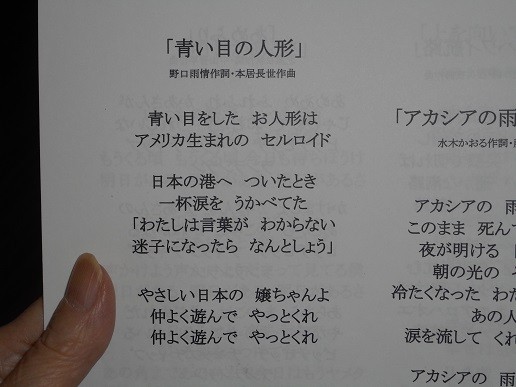 「青い目の人形」
野口雨情作詞・本居長世作曲
青い目をした お人形は
アメリカ生まれの セルロイド
日本の港へ ついたとき
一杯涙を うかべてた
「わたしは言葉が わからない
迷子になったら なんとしょう」
やさしい日本の 嬢ちゃんよ
仲よく遊んで やっとくれ
仲よく遊んで やっとくれ
「アカシアの雨
水木かおる作詞・
アカシアの 雨
このまま 死んで
夜が明ける
朝の光の
冷たくなった わた
あの人
涙を流して くれ
アカシアの 雨